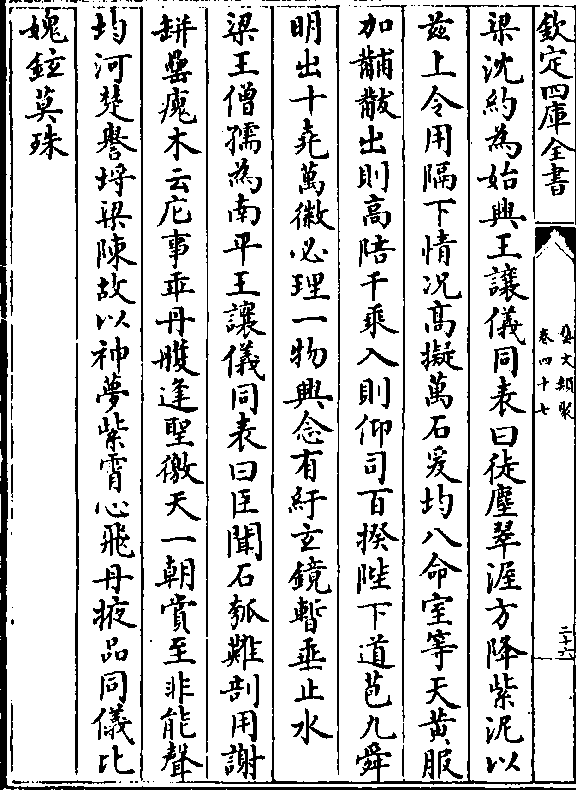 欽定四庫全書
藝文類聚
卷四十七
二十六
梁沈約為始興王讓儀同表曰徒塵翠渥方降紫泥以
兹上令用隔下情况高擬萬石爰均八命室等天黄服
加黼黻出則高陪千乘入則仰司百揆陛下道苞九舜
明出十堯萬徽必理一物興念有紆玄鏡暫垂止水
梁王僧孺為南平王讓儀同表曰臣聞石瓠難剖用謝
缾罍瘣木云庀事乖丹雘逢聖徼天一朝賞至非能聲
均河楚譽埓梁陳故以神夢紫霄心飛丹掖品同儀比
媿鉉莫珠